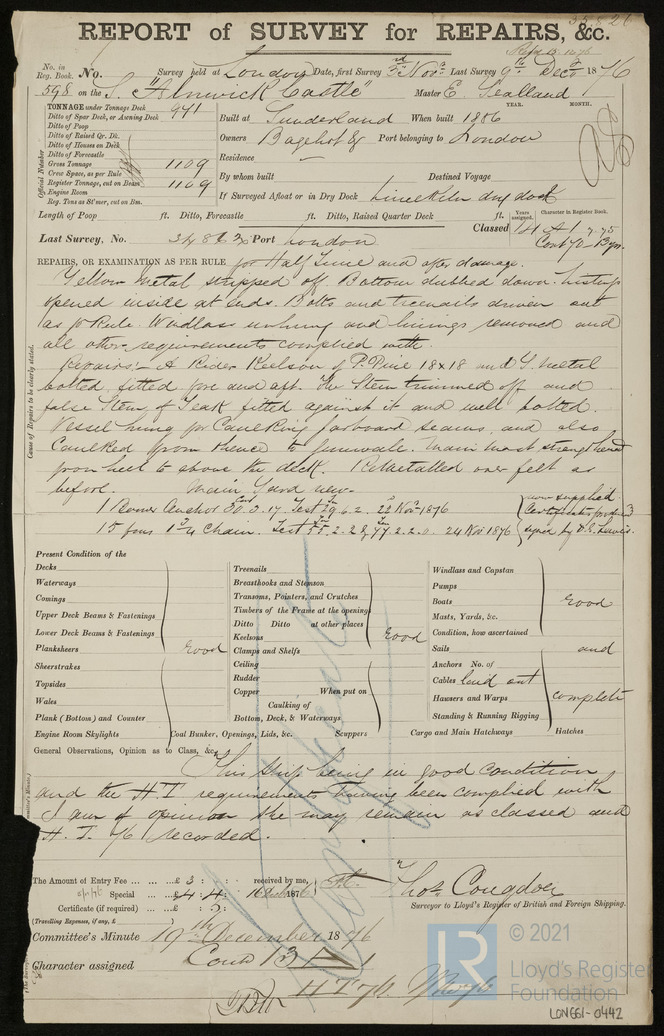 REPORT of SURVEY for REPAIRS, &c.
No. in Reg. Book. No. Survey held at London Date, first Survey 3rd Novr Last Survey 9th Decr 1876
598 on the S. "Alnwick Castle" Master E. Sealland
TONNAGE under Tonnage Deck 941
Ditto of Spar Deck, or Awning Deck
Ditto of Poop
Ditto of Raised Qr. Dk.
Ditto of Houses on Deck
Ditto of Forecastle
Gross Tonnage 1109
Crew Space, as per Rule
Register Tonnage, cut on Beam 1109
Engine Room
Reg. Tons as St'mer, cut on Bm.
Official Number
YEAR. MONTH.
Built at Sunderland When built 1856
Owners Port belonging to London
Residence
By whom built Destined Voyage
If Surveyed Afloat or in Dry Dock Limekiln dry dock
Length of Poop ft. Ditto, Forecastle ft. Ditto, Raised Quarter Deck ft.
Years assigned. Character in Register Book.
Classed 14 A 1 7.75
Last Survey, No. Port London
REPAIRS, OR EXAMINATION AS PER RULE for Half Time and after damage.
Yellow metal stripped off. Bottom dubbed down. Listings
opened inside at ends. Bolts and treenails driven out
as pr Rule. Windlass unhung and linings removed and
all other requirements complied with.
Repairs:- A Rider Keelson of P. Pine 18x18 and Y. metal
bolted, fitted fore and aft. The Stem trimmed off and
false Stem of Teak fitted against it and well bolted.
Vessel hung for Caulking garboard seams, and also
Caulked from thence to gunwale. Main mast strengthened
from heel to above the deck. Remetalled over felt as
before. Main Yard new.
Cause of Repairs to be clearly stated.
1 Bower Anchor 22 Novr 1876
15 fms Chain. Test 24 Nov 1876
now supplied
Certificates produced
Present Condition of the
Decks
Waterways
Comings
Upper Deck Beams & Fastenings
Lower Deck Beams & Fastenings
Planksheers Good
Sheerstrakes
Topsides
Wales
Plank (Bottom) and Counter
Engine Room Skylights
Treenails
Breasthooks and Stemson
Transoms, Pointers, and Crutches
Timbers of the Frame at the openings
Ditto Ditto at other places
Keelsons Good
Clamps and Shelfs
Ceiling
Rudder
Copper When put on
Caulking of
Bottom, Deck, & Waterways
Coal Bunker, Openings, Lids, &c. Scuppers
Windlass and Capstan
Pumps
Boats Good
Masts, Yards, &c.
Condition, how ascertained
Sails and
Anchors No. of
Cables laid out
Hawsers and Warps complete
Standing & Running Rigging
Cargo and Main Hatchways Hatches
General Observations, Opinion as to Class, &c.
This ship being in good condition
and the H.T. requirements having been complied with
I am of opinion she may remain as classed and
H.T. 76 recorded.
The Amount of Entry Fee £ 3 : : received by me,
Special £ 4 4 : 1876
Certificate (if required) £ :
(Travelling Expenses, if any, £ )
Thos. Congdon
Surveyor to Lloyd's Register of British and Foreign Shipping.
Committee's Minute 19th December 1876
Character assigned Contd 13 A 1
H T 76
LR
© 2021
Lloyd's Register
Foundation
LON661-0442